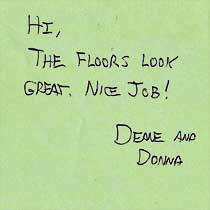 HI,
THE FLOORS LOOK
GREAT. NICE JOB!
DEANE AND
DONNA